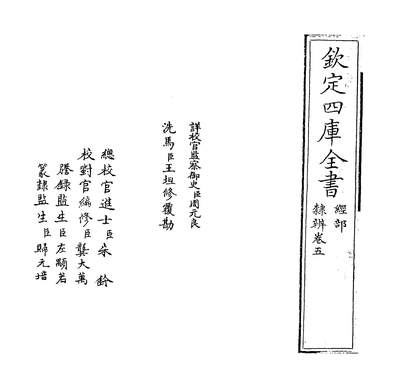 欽定四庫全書
經部
隸辨卷五
詳校官監察御史臣周元良
洗馬臣王坦修覆勘
總校官進士臣朱鈐
校對官編修臣龔大萬
謄錄監生臣左顯若
篆隸監生臣歸元培